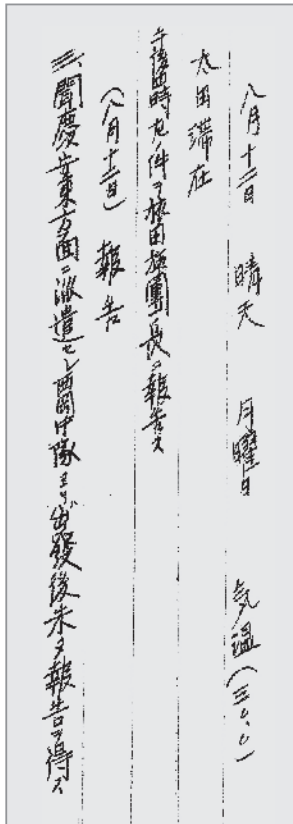 八月十二日 晴天 月曜日 気温(三〇、〇)
太田滞在
午後四時左ノ件ヲ 田旅團長ニ報告ス
(八月十二日) 報告
三、聞慶安東方面ニ派遣セシ西岡中隊ヨリハ出發後未タ報告ヲ得ス